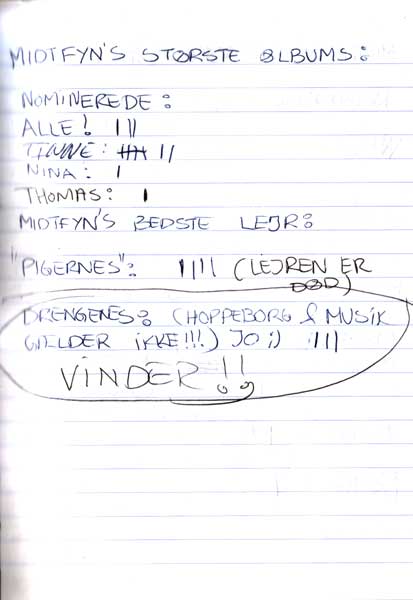 MIDTFYN'S STØRSTE ØLBUMS:
NOMINEREDE:
ALLE! |||
TINNE: |||| ||
NINA: |
THOMAS: |
MIDTFYN'S BEDSTE LEJR:
"PIGERNES": |||| (LEJREN ER
DØD)
DRENGENES: (HOPPEBORG & MUSIK
GÆLDER IKKE!!!) JO ;) |||
VINDER!!